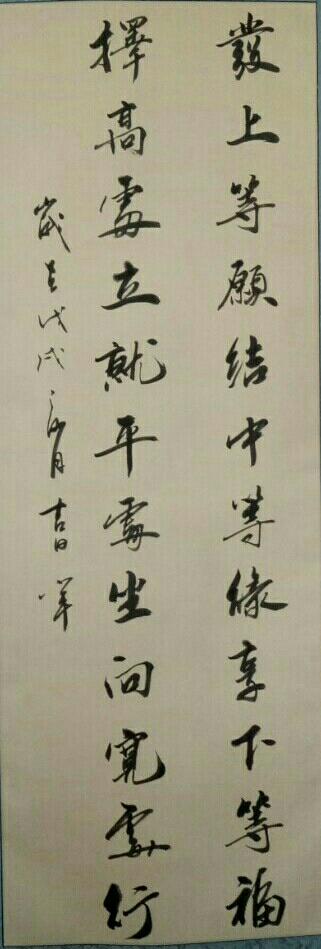 發上等願結中等緣享下等福
擇高處立就平處坐向寬處行
歲在戊戌月吉日